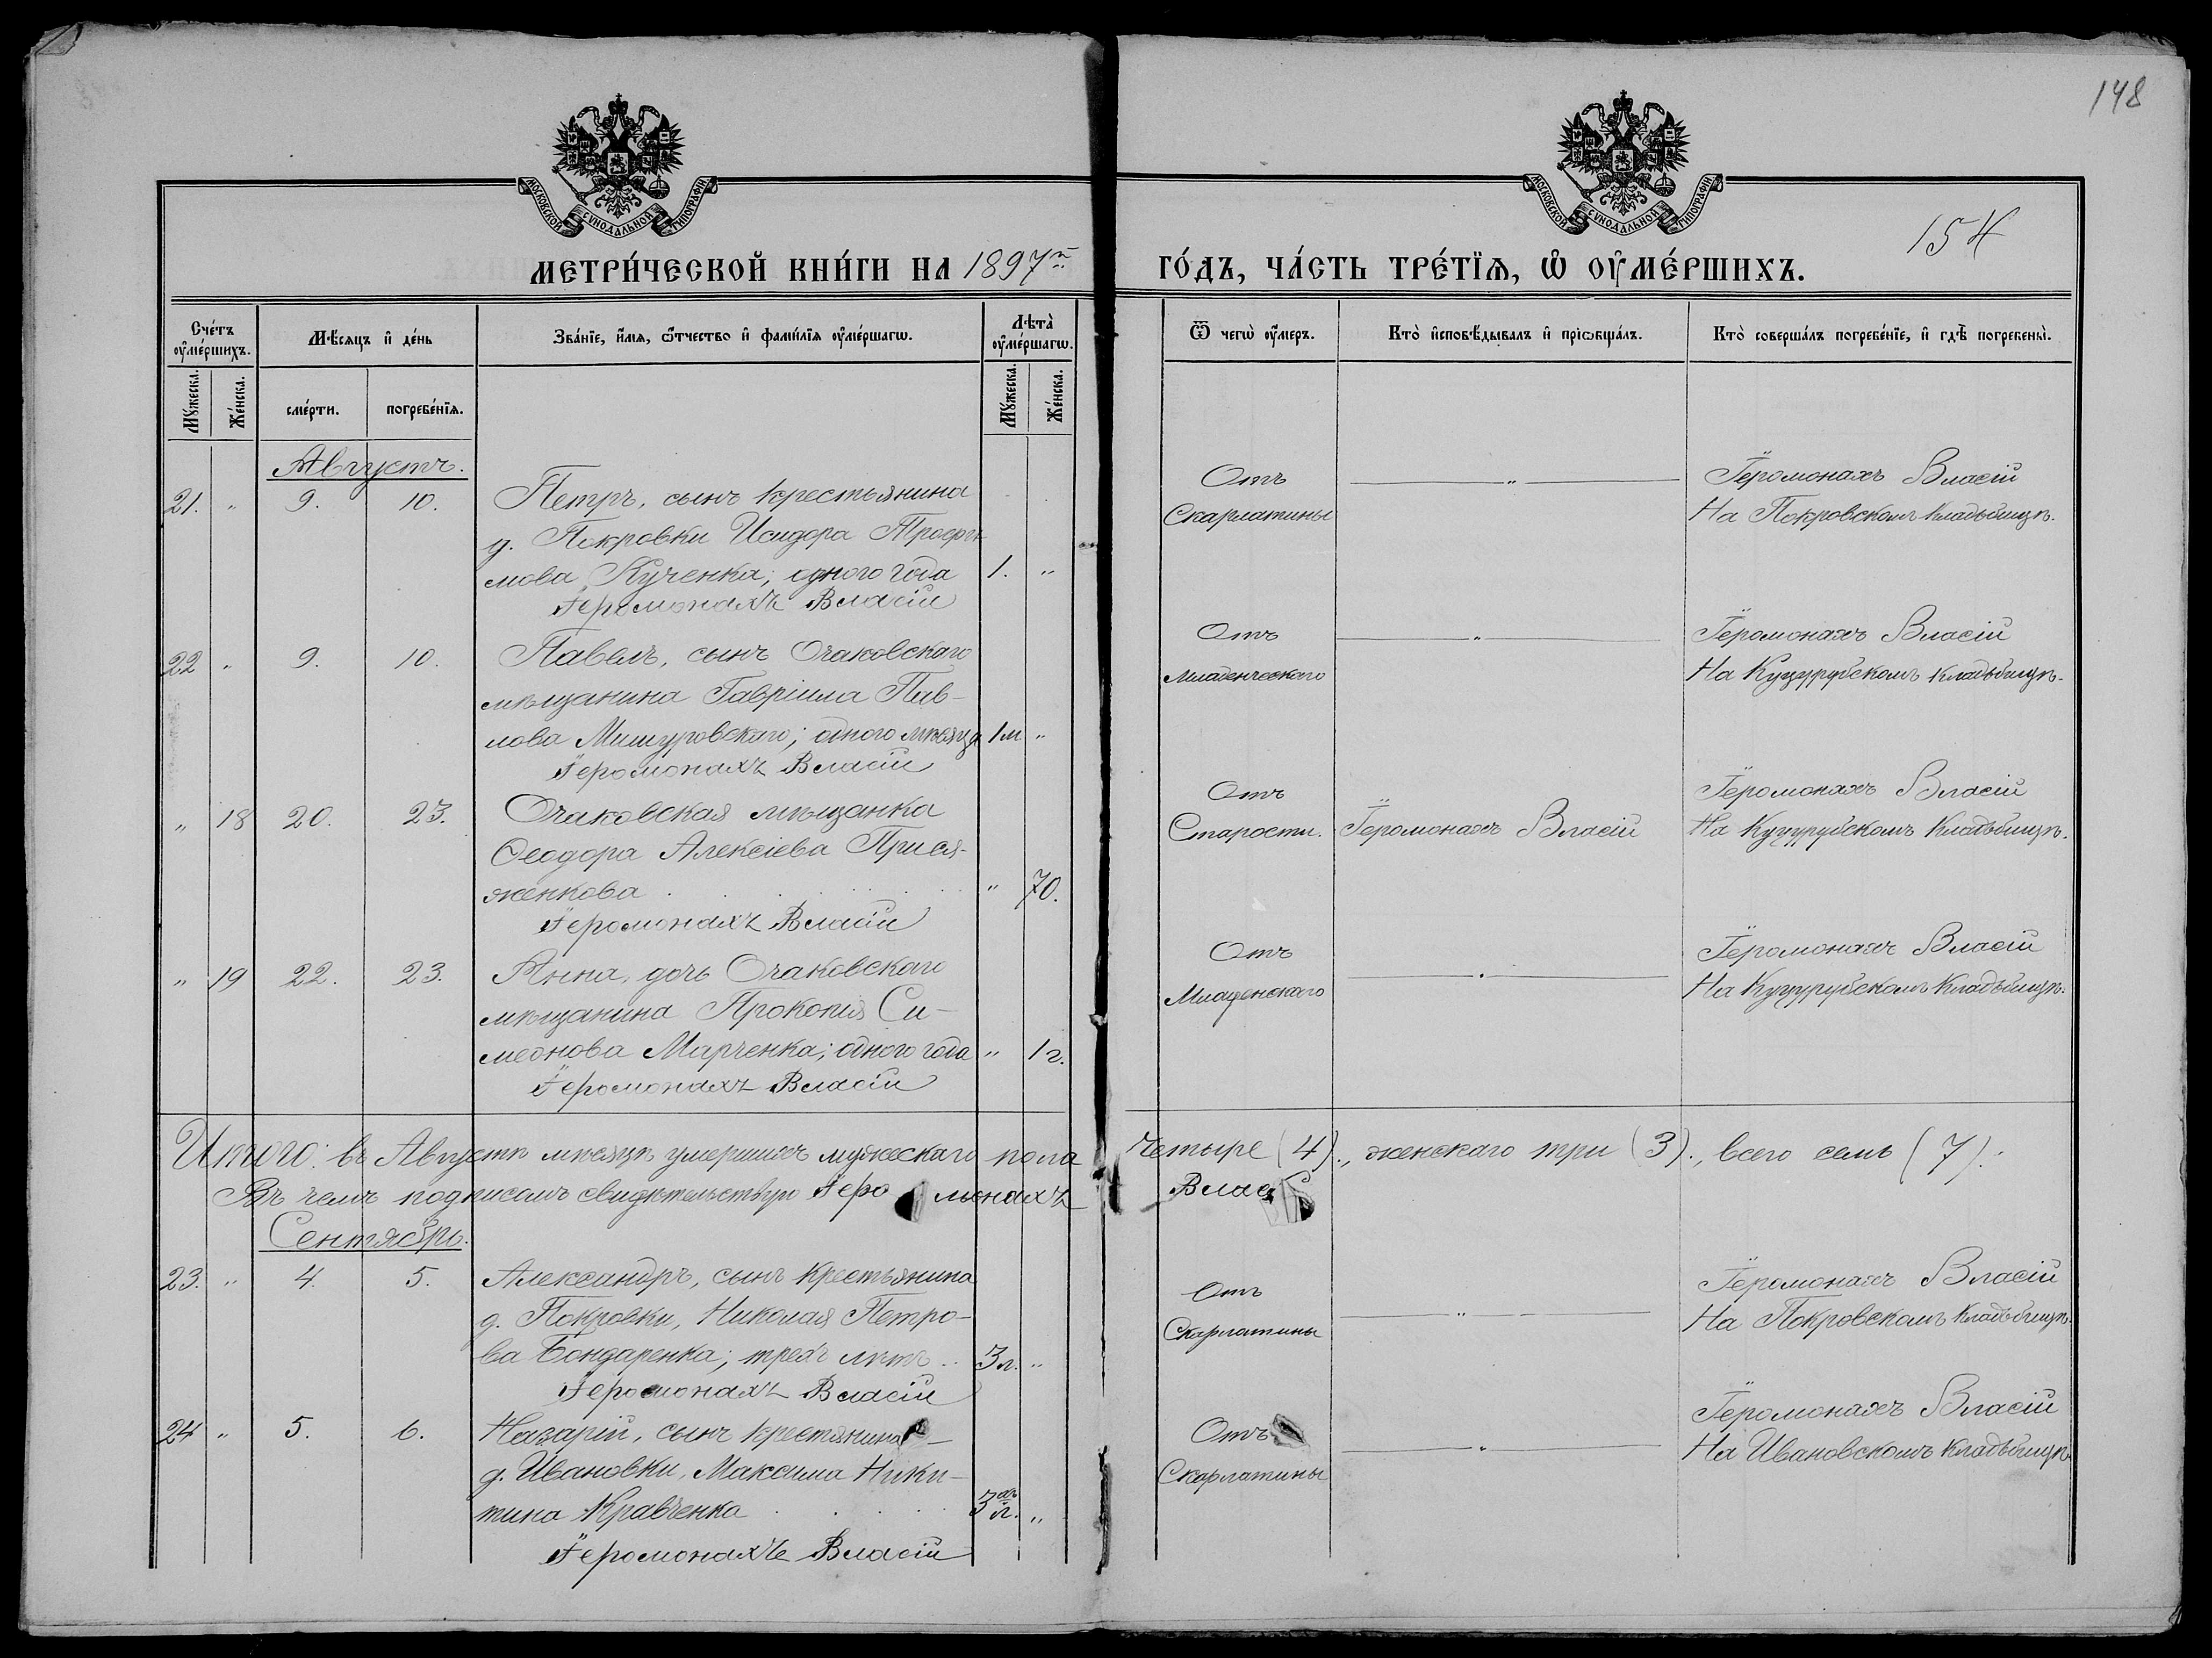 148
МОСКОВСКОЙ СѴНОДАЛЬНОЙ ТИПОГРАФІИ
МОСКОВСКОЙ СѴНОДАЛЬНОЙ ТИПОГРАФІИ
154
МЕТРИ́ЧЕСКОЙ КНИ́ГИ НА 1897й ГО́ДЪ, ЧА́СТЬ ТРЕ́ТЇѦ, Ѽ ОУ҆МЕ́РШИХЪ.
Сче́тъ оу҆ме́ршихъ. Мѣ́сяцъ и҆ де́нь Зва́нїе, и҆́мѧ, ѻ҆́тчество и҆ фами́лїѧ оу҆ме́ршагѡ. Лѣ́та оу҆ме́ршагѡ. Ѿ чегѡ̀ оу҆́меръ. Кто̀ и҆сповѣ́дывалъ и҆ прїѡбща́лъ. Кто̀ соверша́лъ погребе́нїе, и҆ гдѣ̀ погребены̀.
Мꙋ́жеска. Же́нска. сме́рти. погребе́нїѧ. Мꙋ́жеска. Же́нска.
Августъ.
21. " 9. 10. Петръ, сынъ крестьянина
д. Покровки Исидора Трофи-
мова Кученка; одного года 1. "
Іеромонахъ Власій
Отъ
Скарлатины
"
Іеромонахъ Власій
На Покровскомъ кладбищѣ.
22 " 9. 10. Павелъ, сынъ Очаковскаго
мѣщанина Гавріила Пав-
лова Мишуровскаго; одного мѣсяца 1м "
Іеромонахъ Власій
Отъ
Младенческаго
"
Іеромонахъ Власій
На Куцурубскомъ кладбищѣ.
" 18 20. 23. Очаковская мѣщанка
Ѳеодора Алексіева Прися-
женкова " 70.
Іеромонахъ Власій
Отъ
Старости.
Іеромонахъ Власій
Іеромонахъ Власій
На Куцурубскомъ кладбищѣ.
" 19 22. 23. Анна, дочь Очаковскаго
мѣщанина Прокопія Си-
меонова Марченка; одного года " 1г.
Іеромонахъ Власій
Отъ
Младенскаго
"
Іеромонахъ Власій
На Куцурубскомъ кладбищѣ.
Итого: въ Августѣ мѣсяцѣ умершихъ мужескаго пола четыре (4)., женскаго три (3)., всего семь (7).
Въ чемъ подписомъ свидѣтельствую Іеромонахъ
Сентябрь.
23. " 4. 5. Александръ, сынъ крестьянина
д. Покровки, Николая Петро-
ва Бондаренка; трехъ лѣтъ .. 3л. "
Іеромонахъ Власій
Отъ
Скарлатины
"
Іеромонахъ Власій
На Покровскомъ кладбищѣ.
24 " 5. 6. Назарій, сынъ крестянина
д. Ивановки, Максима Ники-
тина Кравченка 3хъ л. "
Іеромонахъ Власій
Отъ
Скарлатины
"
Іеромонахъ Власій
На Ивановскомъ кладбищѣ